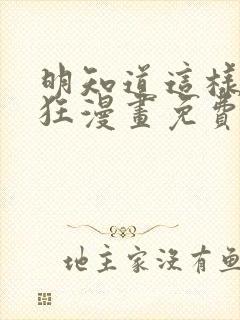 明知道這樣
狂漫畫免費
地主家沒有魚